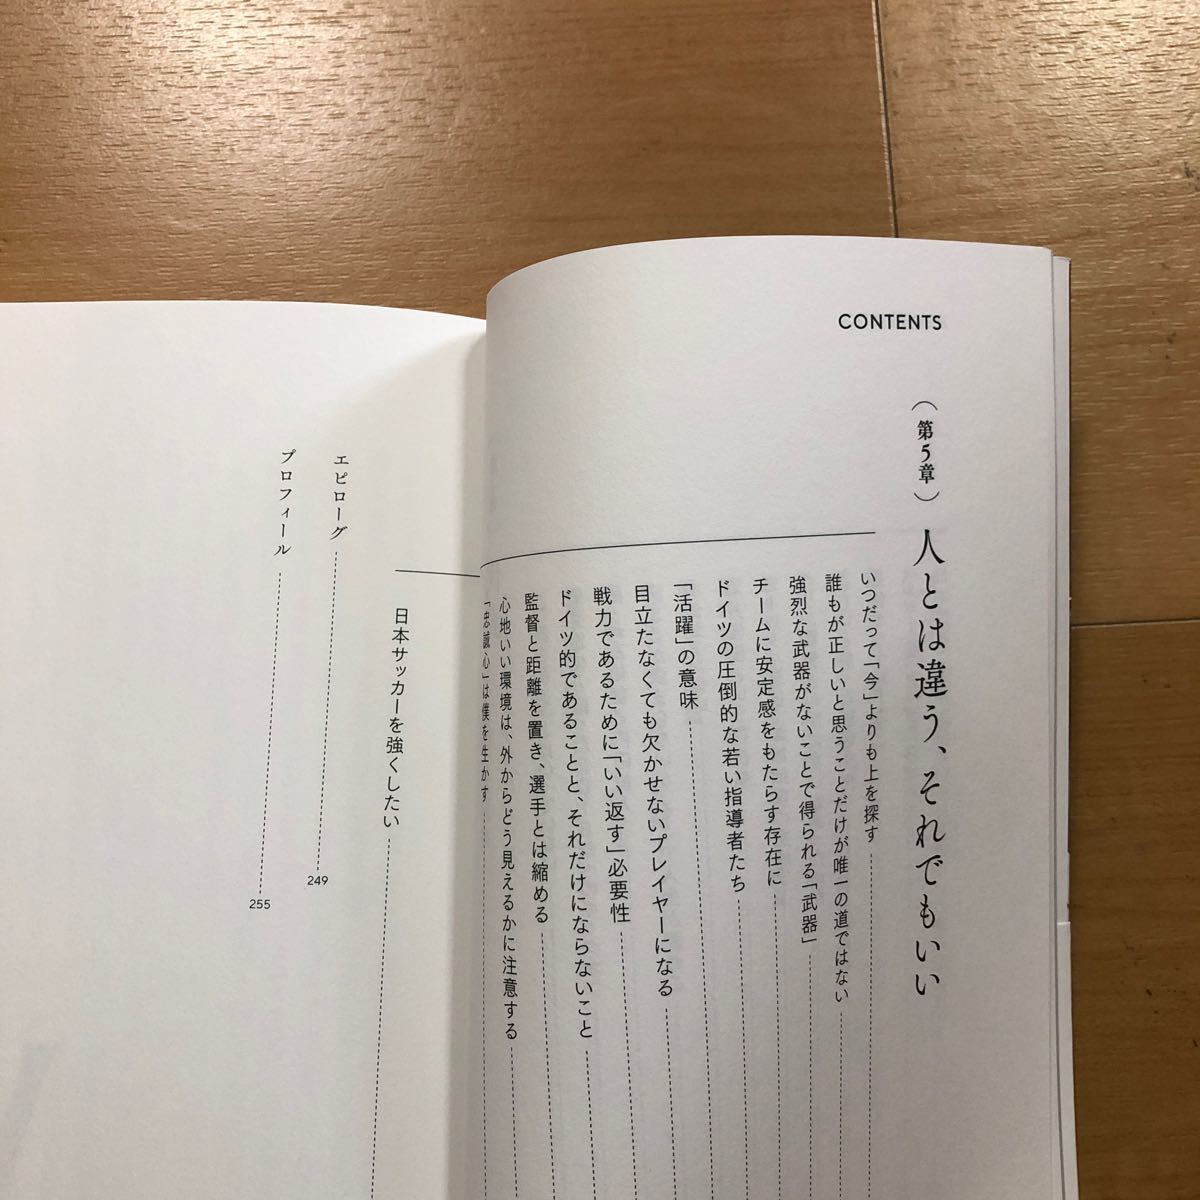 CONTENTS
（第5章）人とは違う、それでもいい
いつだって「今」よりも上を探す
誰もが正しいと思うことだけが唯一の道ではない
強烈な武器がないことで得られる「武器」
チームに安定感をもたらす存在に
ドイツの圧倒的な若い指導者たち
「活躍」の意味
目立たなくても欠かせないプレイヤーになる
戦力であるために「いい返す」必要性
ドイツ的であることと、それだけにならないこと
監督と距離を置き、選手とは縮める
心地いい環境は、外からどう見えるかに注意する
「忠誠心」は僕を生かす
日本サッカーを強くしたい
エピローグ 249
プロフィール 255